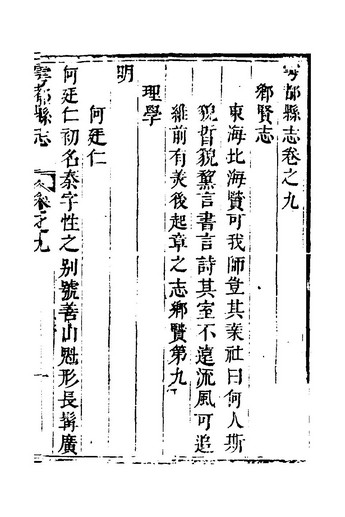 雩都縣志卷之九
鄉賢志
東海北海賢可我師登其業社曰何人斯
貌哲貌黧言書言詩其室不遠流風可追
維前有美後起章之志鄉賢第九
理學
明
何廷仁
何廷仁初名泰字性之别號善山魁形長髯廣
雩都縣志 卷之九 一